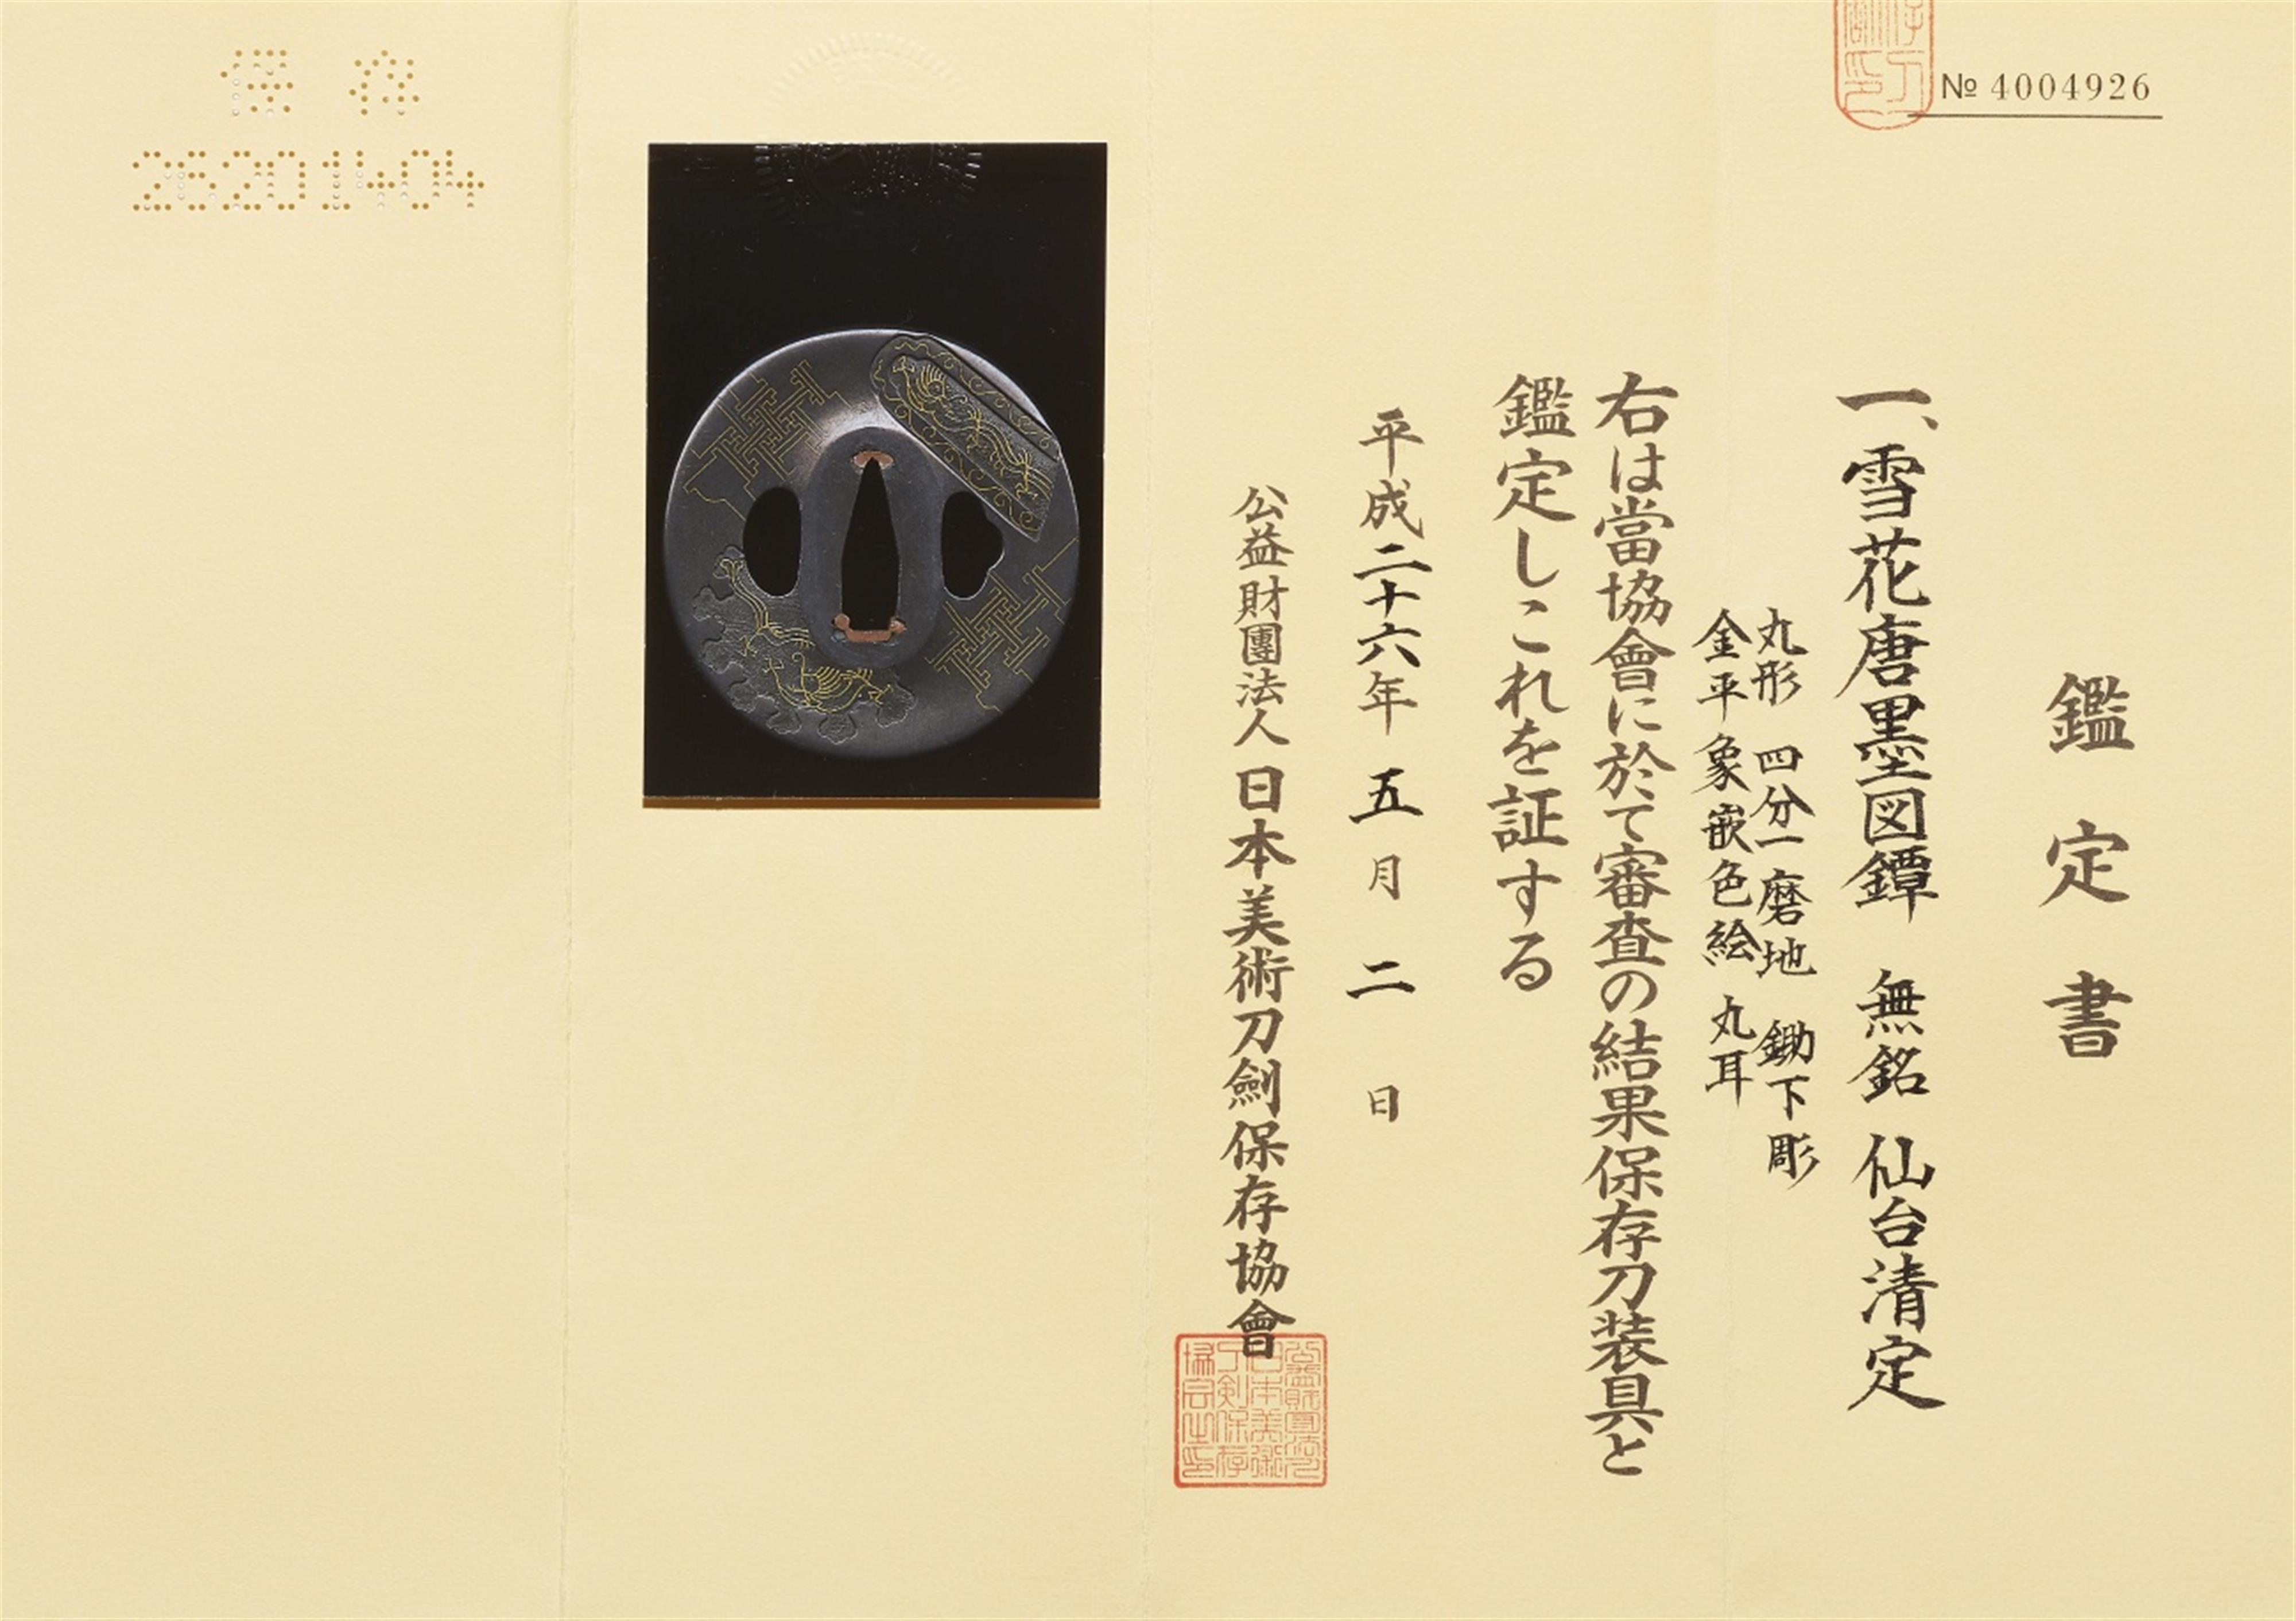 № 4004926
鑑定書
一、雪花唐墨図鐔 無銘 仙台清定
丸形 四分一磨地 鋤下彫
金平象嵌色絵 丸耳
右は當協會に於て審査の結果保存刀装具と
鑑定しこれを証する
平成二十六年 五月 二日
公益財團法人 日本美術刀劍保存協會
公益財団法人日本美術刀剣保存協会之印
保存
26201404